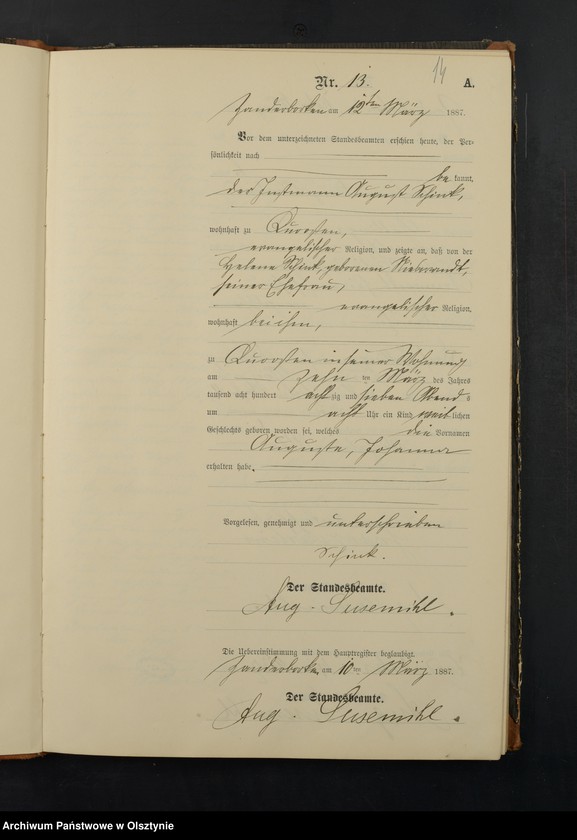 14
Nr. 13. A.
Zanderborken am 12ten März 1887.
Vor dem unterzeichneten Standesbeamten erschien heute, der Per-
sönlichkeit nach
be kannt,
der Instmann August Schink,
wohnhaft zu
evangelischer Religion, und zeigte an, daß von der
Helene Schink, geborenen
seiner Ehefrau,
evangelischer Religion,
wohnhaft bei ihm,
zu in seiner Wohnung
am zehn ten März des Jahres
tausend acht hundert acht zig und sieben Abends
um acht Uhr ein Kind weib lichen
Geschlechts geboren worden sei, welches die Vornamen
Auguste, Johanna
erhalten habe.
Vorgelesen, genehmigt und unterschrieben
Schink.
Der Standesbeamte.
Aug. Susemihl.
Die Uebereinstimmung mit dem Hauptregister beglaubigt.
am März 1887.
Der Standesbeamte.
Aug. Susemihl.
Archiwum Państwowe w Olsztynie